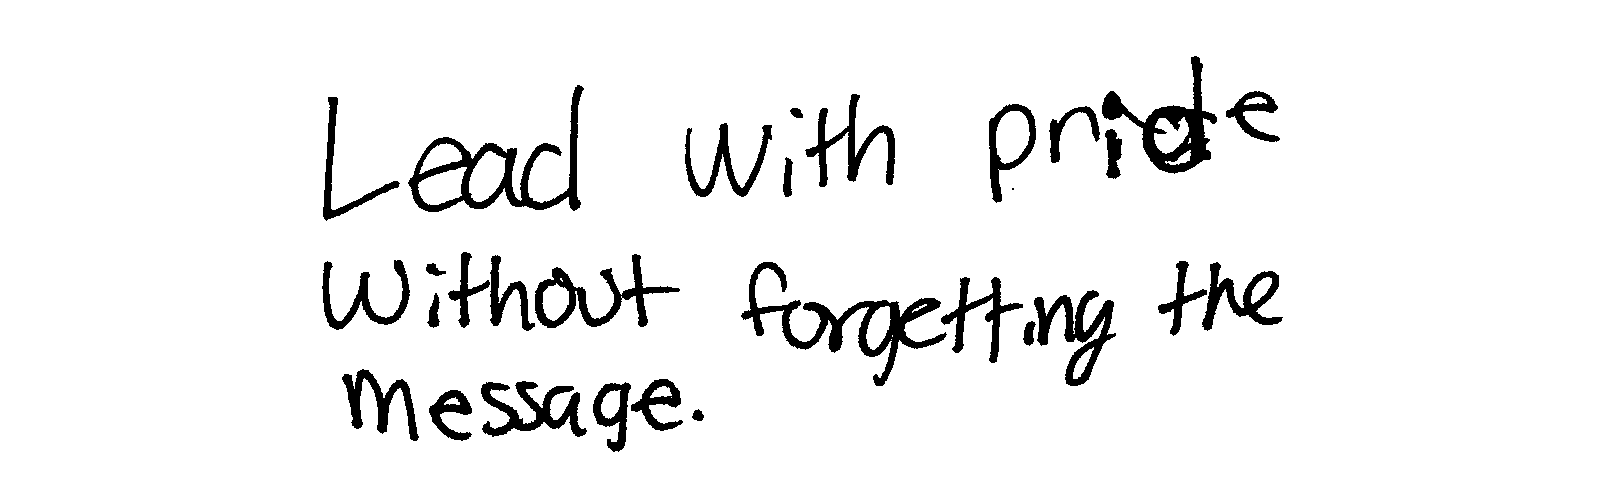 Lead with pride
without forgetting the
message.